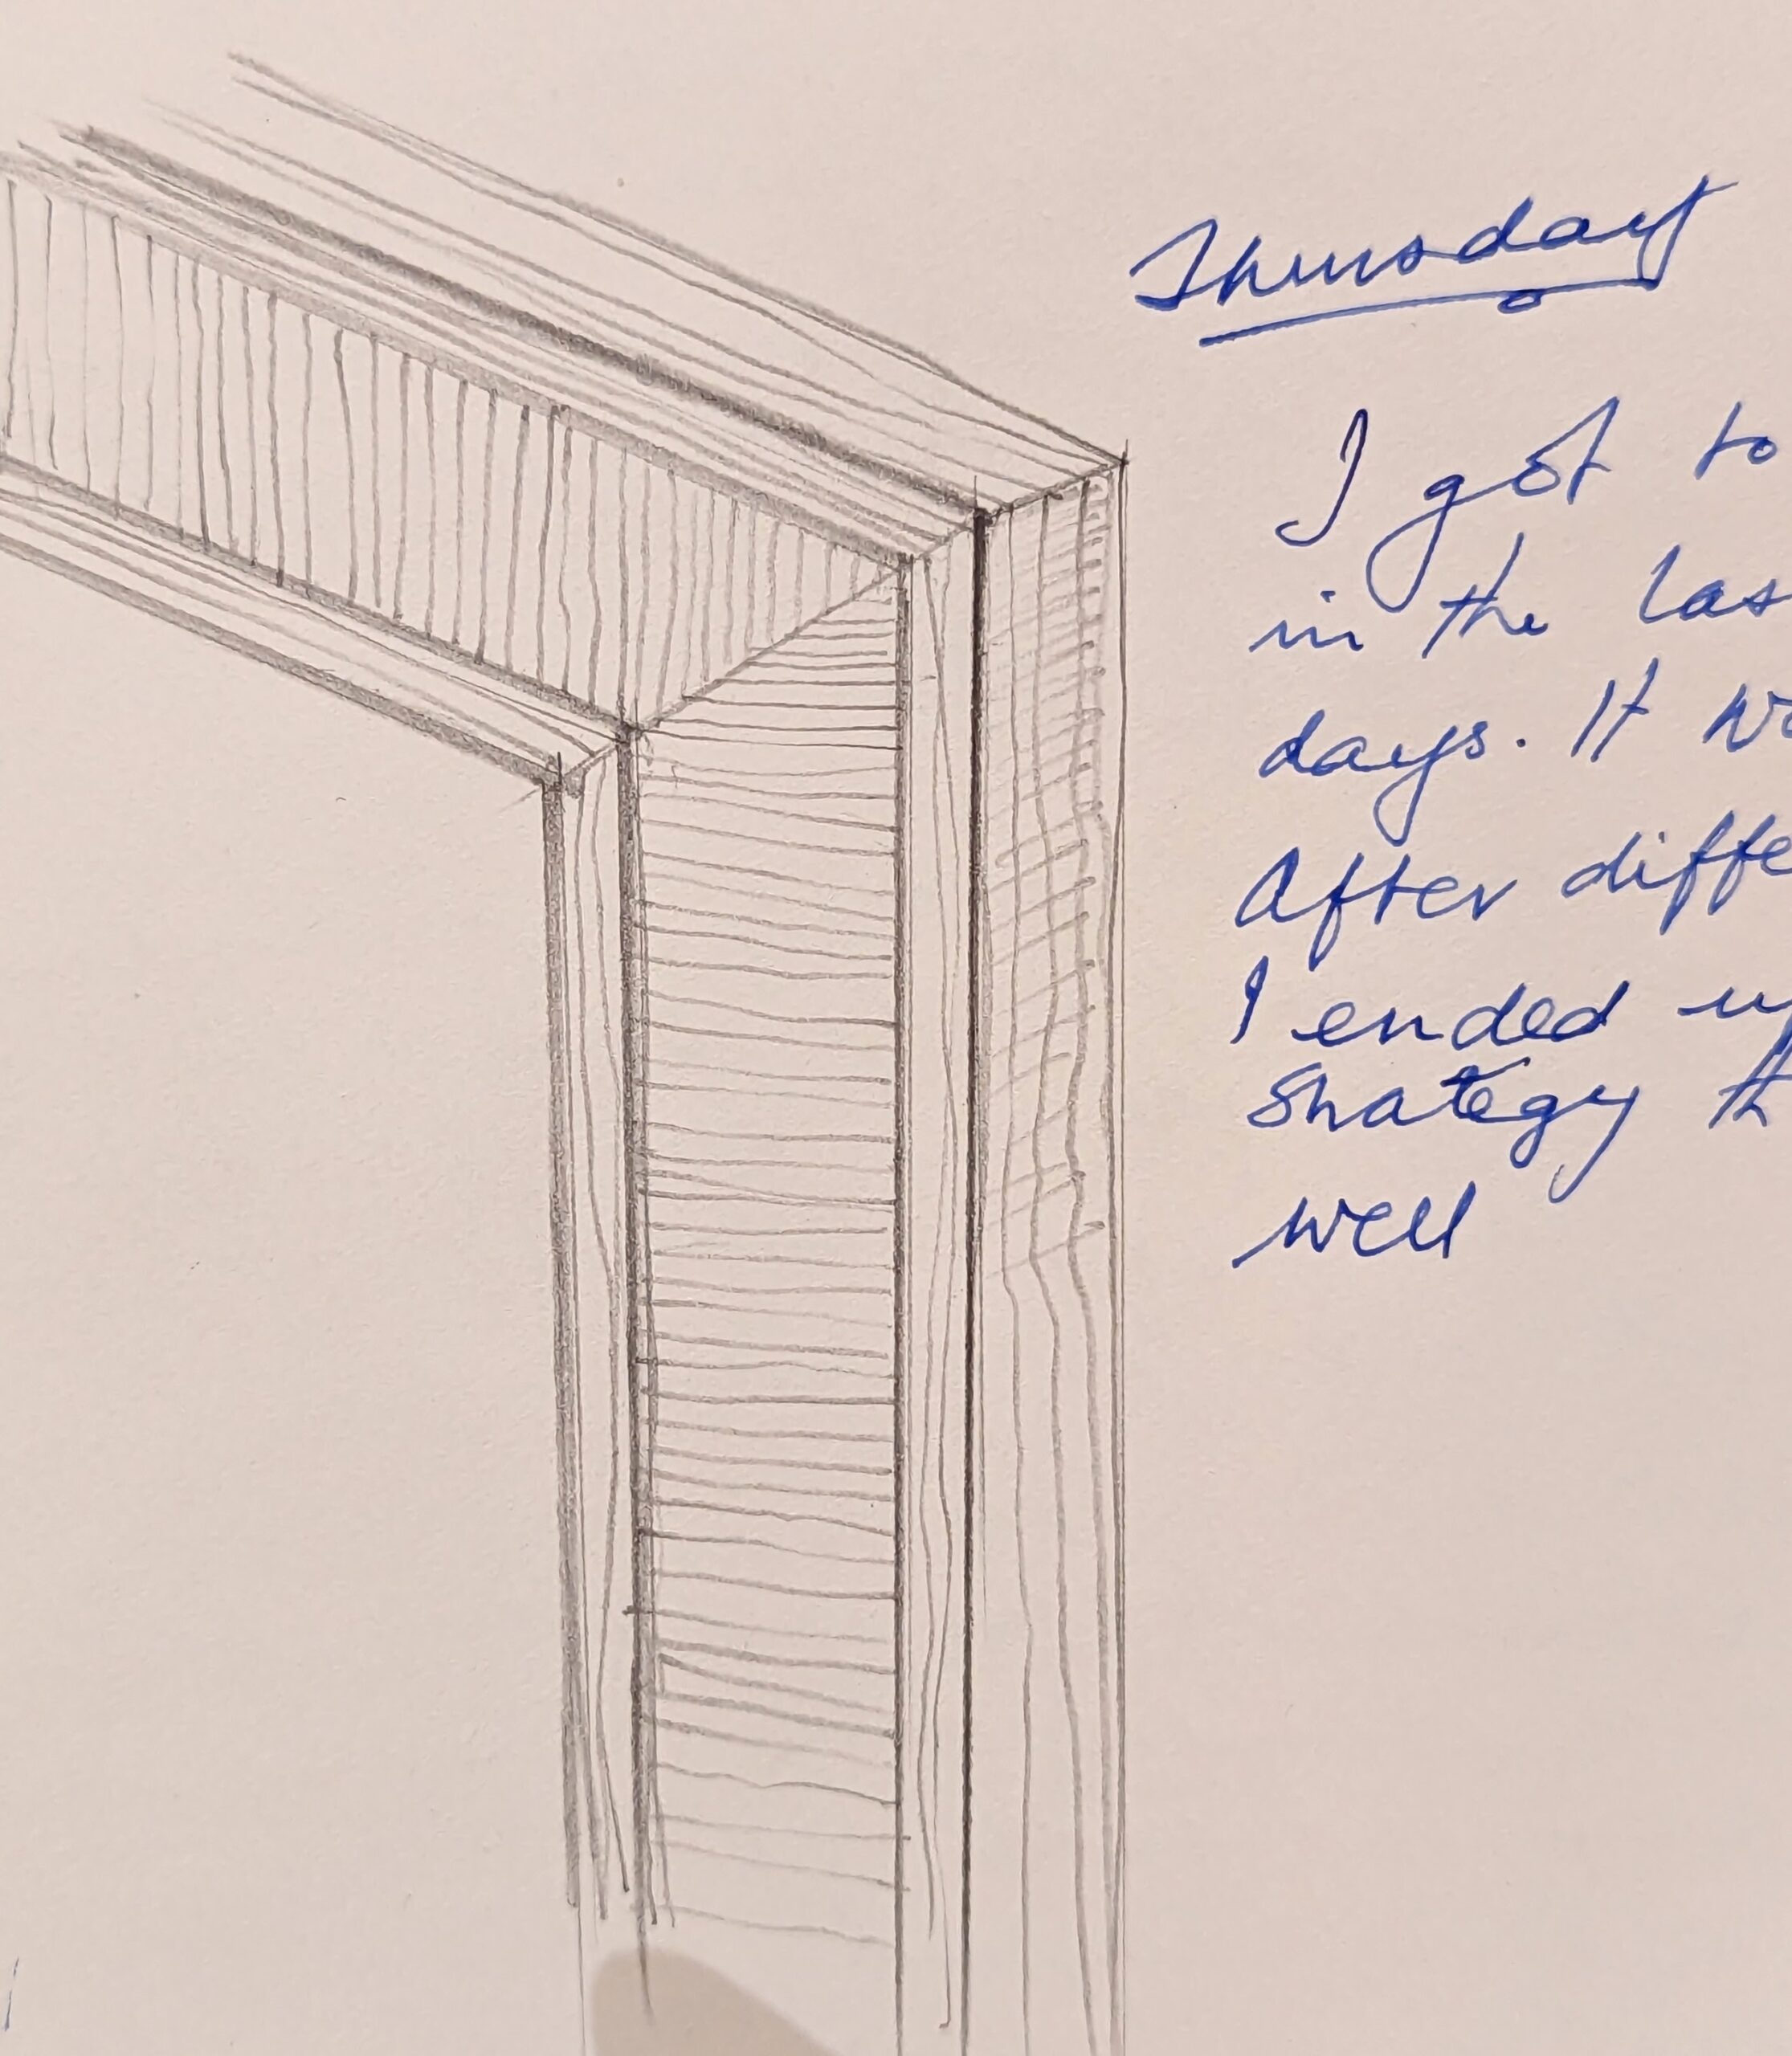 Thursday
I got to
in the las
days. It
After diffe
I ended
Strategy th
well